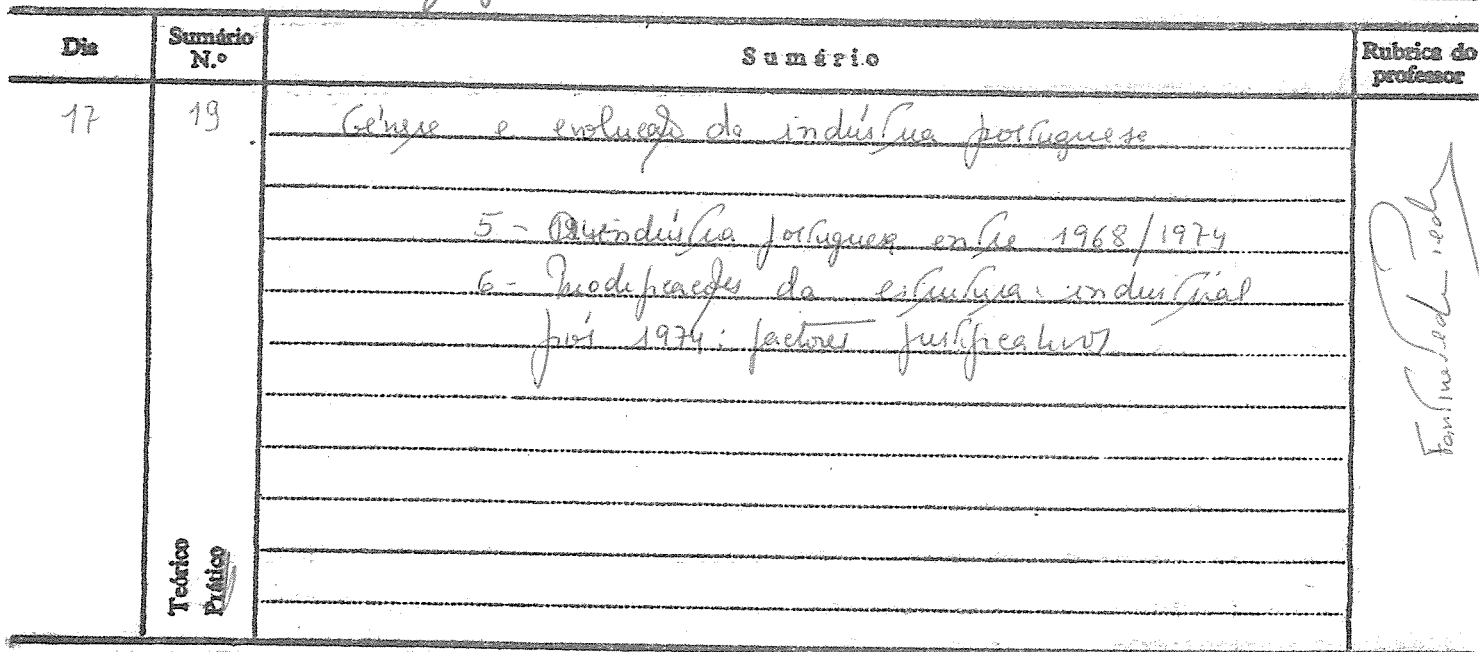 Dia Sumário N.º Sumário Rubrica do professor
17 19 Génese e evolução da indústria portuguesa
5 - A indústria portuguesa entre 1968/1974
6 - Modificações da estrutura industrial
pós 1974: factores justificativos
Teórico
Prático